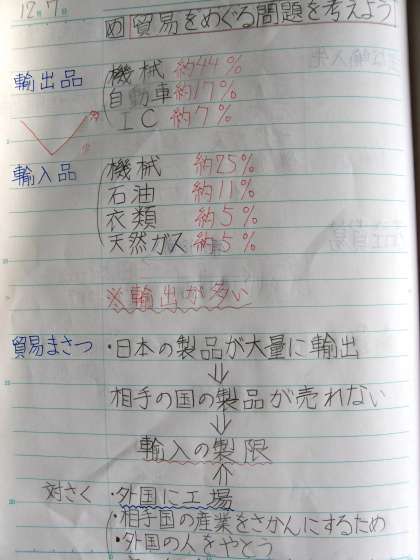 12月7日
め 貿易をめぐる問題を考えよう
輸出品 機械 約44%
自動車 約17%
IC 約7%
輸入品 機械 約25%
石油 約11%
衣類 約5%
天然ガス 約5%
※輸出が多い
貿易まさつ ・日本の製品が大量に輸出
⇓
相手の国の製品が売れない
⇓
輸入の製限
⇑
対さく ・外国に工場
・相手国の産業をさかんにするため
・外国の人をやとう